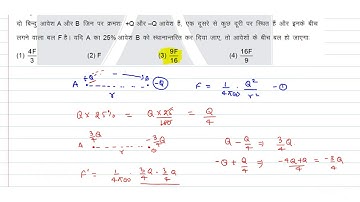 दो बिन्दु आवेश A और B जिन पर क्रमशः +Q और –Q आवेश है, एक दूसरे से कुछ दूरी पर स्थित हैं और इनके बीच
लगने वाला बल F है। यदि A का 25% आवेश B को स्थानान्तरित कर दिया जाए, तो आवेशों के बीच बल हो जाएगाः
(1) 4F/3 (2) F (3) 9F/16 (4) 16F/9
A +Q -Q F = 1/4πε0 Q²/r² -①
r
Q x 25% = Q x 25/100 = Q/4
3Q/4 -3Q/4 Q - Q/4 ⇒ 3Q/4
A r -Q + Q/4 ⇒ -4Q+Q/4 = -3Q/4
F' = 1/4πε0 3Q/4 · 3Q/4